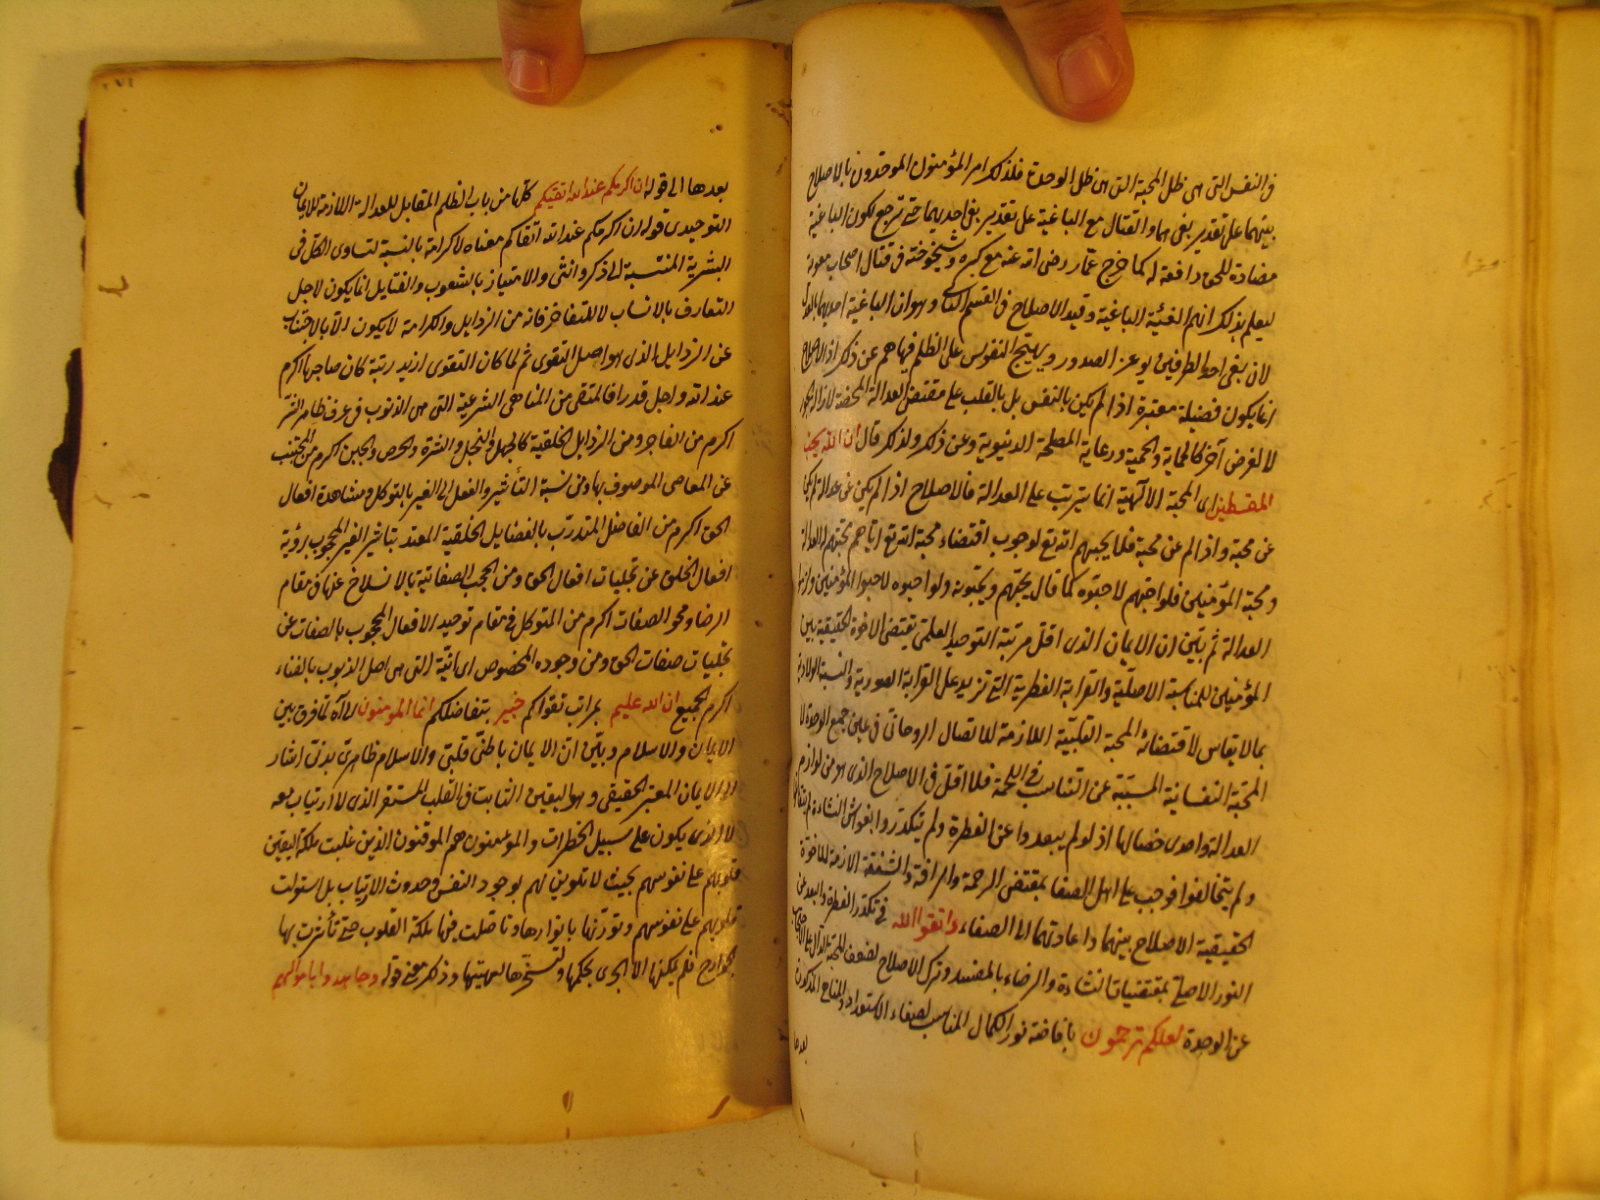 فى النفس التى هى ظل المحبة التى هى ظل الوحدة فلذلك امر المؤمنون الموحدون بالاصلاح
بينهما على تقدير بغيهما والقتال مع الباغية على تقدير بغى احديهما حتى ترجع لكون الباغية
مضادة للحق دافعة له كما خرج عمار رضى الله عنه مع كبره وشيخوخته فى قتال اصحاب معوية
ليعلم بذلك انهم الفئية الباغية وقيد الاصلاح فى القسم الثانى وهو ان الباغية احديهما بالعدل
لان بغى احد الطرفين يوغر الصدور ويهيج النفوس على الظلم فنهاهم عن ذلك اذ الاصلاح
انما يكون فضيلة معتبرة اذا لم يكن بالنفس بل بالقلب على مقتضى العدالة المحضة لازالة الجور
لا لغرض آخر كالحماية والحمية ورعاية المصلحة الدنيوية وغير ذلك ولذلك قال ان الله يحب
المقسطين اى المحبة الالهية انما يترتب على العدالة فالاصلاح اذا لم يكن عن عدالة لم يكن
عن محبة واذا لم عن محبة فلا يحبهم الله تع لوجوب اقتضاء محبة الله تع اياهم محبتهم له العدالة
ومحبة المؤمنين فلو احبهم لاحبوه كما قال يحبهم ويحبونه ولو احبوه لاحبوا المؤمنين ولزموا
العدالة ثم بين ان الايمان الذى اقل مرتبة التوحيد العلمى يقتضى الاخوة الحقيقية بين
المؤمنين للمناسبة الاصلية والقرابة الفطرية التى تزيد على القرابة الصورية والنسبة الولادية
بما لا يقاس لاقتضائه المحبة القلبية اللازمة للاتصال الروحانى فى عين جمع الوحدة لا
المحبة النفسانية المسببة عن التناسب فى اللحمة فلا اقل فى الاصلاح الذى هو من لوازم
العدالة واحدى خصالها اذ لو لم يبعدوا عن الفطرة ولم يتكدروا بغواشى النشاءة لم يتقاتلوا
ولم يتخالفوا فوجب على اهل الصفا بمقتضى الرحمة والرافة والشفقة اللازمة للاخوة
الحقيقية الاصلاح بينهما واعادتهما الى الصفاء واتقوا الله فى تكدر الفطرة والبعد عن
النور الاصلى بمقتضيات النشاءة والرضاء بالمفسد وترك الاصلاح لضعف المحبة الدال على الاحتجاب
عن الوحدة لعلكم ترحمون بافاضة نور الكمال المناسب لصفاء الاستعداد والمناهى المذكورة
بعدها
بعدها الى قوله ان اكرمكم عند الله اتقيكم كلها من باب الظلم المقابل للعدالة اللازمة للايمان
التوحيدى قوله ان اكرمكم عند الله اتقاكم معناه لا كرامة بالنسبة لتساوى الكل فى
البشرية المنتسبة الى ذكر وانثى والامتياز بالشعوب والقبايل انما يكون لاجل
التعارف بالانساب لا للتفاخر فانه من الرذايل والكرامة لا يكون الا بالاجتناب
عن الرذايل الذى هو اصل التقوى ثم لما كان التقوى ازيد رتبة كان صاحبها اكرم
عند الله واجل قدرا فالمتقى من المناهى الشرعية التى هى الذنوب فى عرف ظاهر الشرع
اكرم من الفاجر ومن الرذايل الخلقية كالجهل والبخل والشره والحرص والجبن اكرم من المجتنب
عن المعاصى الموصوف بها ومن نسبة التأثير والفعل الى الغير بالتوكل ومشاهدة افعال
الحق اكرم من الفاضل المتدرب بالفضايل الخلقية المعتد بتاثير الغير المحجوب برؤية
افعال الخلق عن تجليات افعال الحق ومن الحجب الصفاتية بالانسلاخ عنها فى مقام
الرضا ومحو الصفات اكرم من المتوكل فى مقام توحيد الافعال المحجوب بالصفات عن
تجليات صفات الحق ومن وجوده المخصوص اى انيّته التى هى اصل الذنوب بالفناء
اكرم الجميع ان الله عليم بمراتب تقواكم خبير بتفاضلكم انما المومنون لآاه لما فرق بين
الايمان والاسلام وبين ان الايمان باطنى قلبى والاسلام ظاهرى بدنى اشار
الى الايمان المعتبر الحقيقى وهو اليقين الثابت فى القلب المستقر الذى لا ارتياب معه
لا الذى يكون على سبيل الخطرات والمومنون هم الموقنون الذين غلبت ملكة اليقين
قلوبهم على نفوسهم بحيث لا تلوين لهم بوجود النفس وحدوث الارتياب بل استولت
قلوبهم على نفوسهم ونورتها بانوارها وتاصلت فيها ملكة القلوب حتى تأثرت بها
الجوارح فلم يمكنها الا الجرى بحكمها والتسخر لهيئتها وذلك معنى قوله وجاهدوا باموالهم